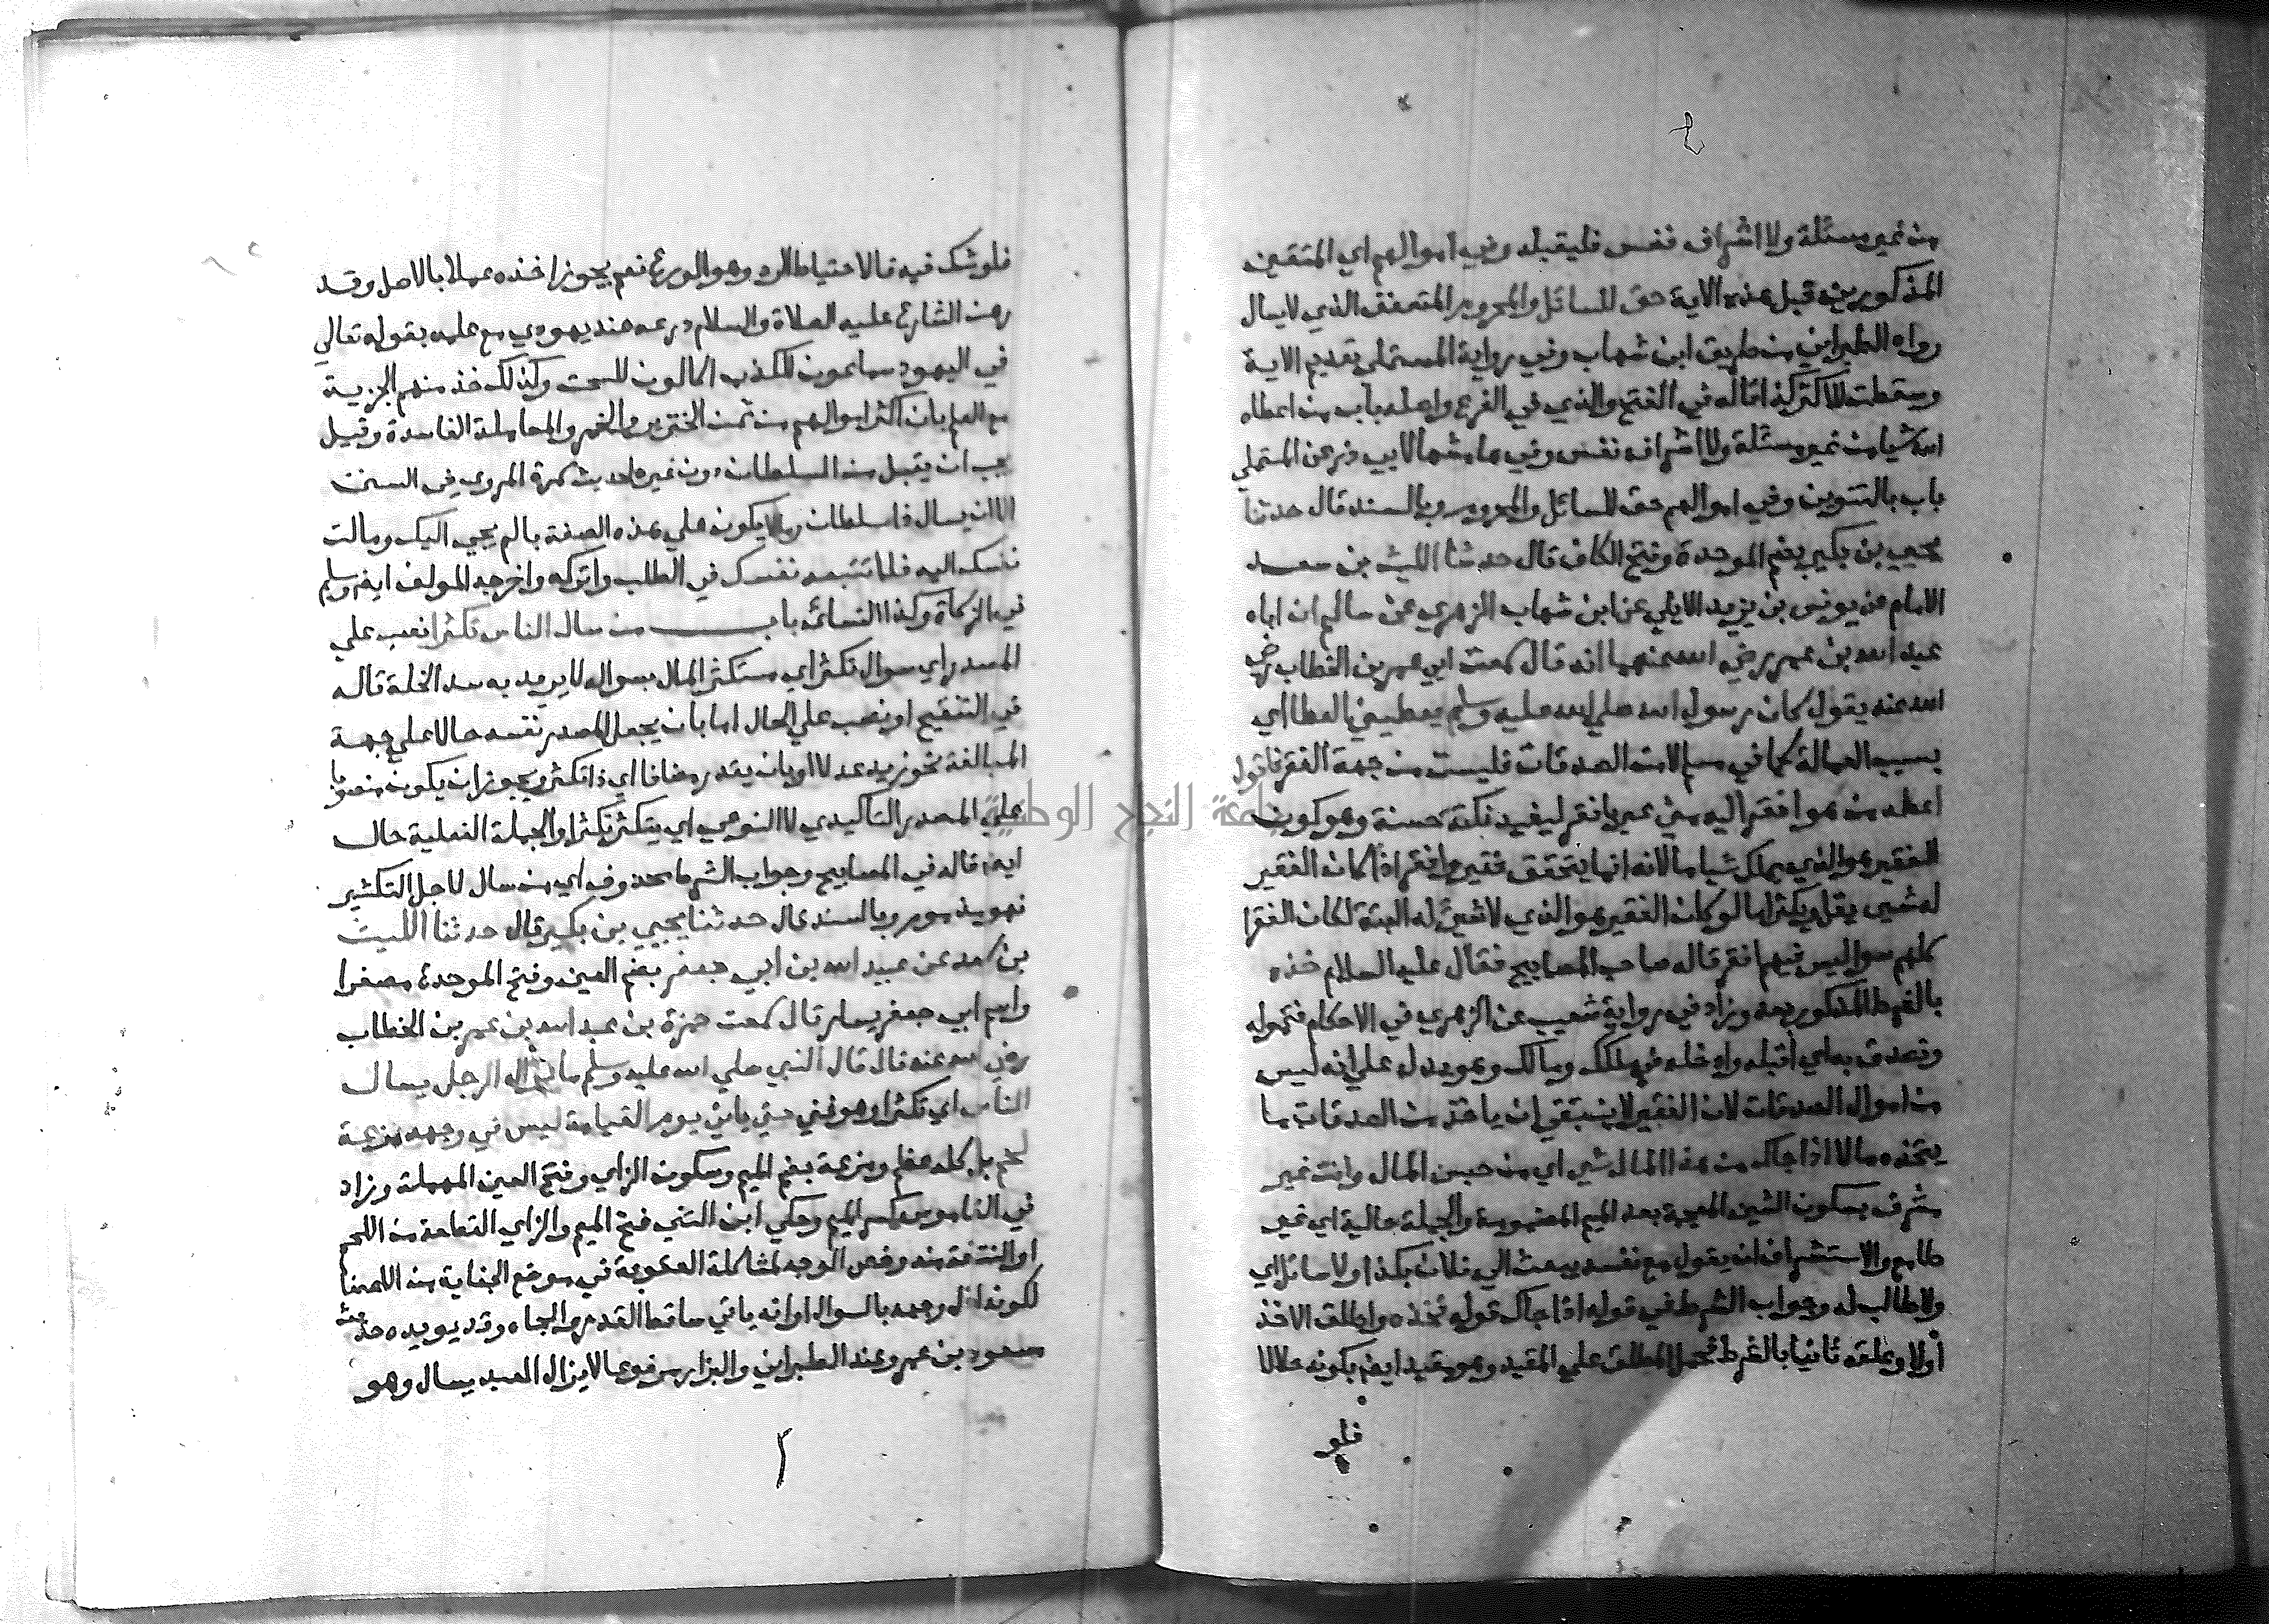 من غير مسئلة ولا اشراف نفس فليقبله وفي اموالهم اي المتقين
المذكورين قبل هذه الاية حق للسائل والمحروم المتعفف الذي لا يسال
رواه الطبراني من طريق ابن شهاب وفي رواية المستملي تقديم الاية
وسقطت للاكثر كذا قاله في الفتح والذي في الفرع واصله باب من اعطاه
الله شيا من غير مسئلة ولا اشراف نفس وفي هامشهما لابي ذر عن المستملي
باب بالتنوين وفي اموالهم حق للسائل والمحروم وبالسند قال حدثنا
يحيي بن بكير بضم الموحدة وفتح الكاف قال حدثنا الليث بن سعد
الامام عن يونس بن يزيد الايلي عن ابن شهاب الزهري عن سالم ان اباه
عبد الله بن عمر رضي الله عنهما انه قال سمعت ابي عمر بن الخطاب رضي
الله عنه يقول كان رسول الله صلي الله عليه وسلم يعطيني العطا اي
بسبب العمالة كما في مسلم لا من الصدقات فليست من جهة الفقر فاقول
اعطه من هو افقر اليه مني عبر بافقر ليفيد نكتة حسنة وهو كون
الفقير هو الذي يملك شيا ما لانه انما يتحقق فقير وافقر اذا كان الفقير
له شيئ يقل ويكثر اما لو كان الفقير هو الذي لا شيئ له البتة لكان الفقرا
كلهم سوا ليس فيهم افقر قاله صاحب المصابيح فقال عليه السلام خذه
بالشرط المذكور بعد وزاد في رواية شعيب عن الزهري في الاحكام فتموله
وتصدق به اي اقبله وادخله في ملكك ومالك وهو يدل علي انه ليس
من اموال الصدقات لان الفقير لا ينبغي ان ياخذ من الصدقات ما
يتخذه مالا اذا جاك من هذا المال شي اي من جنس المال وانت غير
مشرف بسكون الشين المعجمة بعد الميم المضمومة والجملة حالية اي غير
طامع والاستشراف انه يقول مع نفسه يبعث الي فلان بكذا ولا سائل اي
ولا طالب له وجواب الشرط في قوله اذا جاك قوله فخذه واطلق الاخذ
اولا وعلقه ثانيا بالشرط فحمل المطلق علي المقيد وهو مقيد ايضا بكونه حلالا
فلو
فلو شك فيه فالاحتياط الرد وهو الورع نعم يجوز اخذه عملا بالاصل وقد
رهن الشارع عليه الصلاة والسلام درعه عند يهودي مع علمه بقوله تعالي
في اليهود سماعون للكذب اكالون للسحت وكذلك خذ منهم الجزية
مع العلم بان اكثر اموالهم من ثمن الخنزير والخمر والمعاملة الفاسدة وقيل
يجب ان يقبل من السلطان دون غيره لحديث سمرة المروي في السنن
الا ان يسال ذا سلطان وما لا يكون علي هذه الصفة بالم يجي اليك ومالت
نفسك اليه فلا تتبعه نفسك في الطلب واتركه واخرجه المولف ايضا ومسلم
في الزكاة وكذا النسائي باب من سال الناس تكثرا نصب علي
المصدر اي سوال تكثر اي مستكثر المال بسواله لا يريد به سد الخلة قاله
في التنقيح او نصب علي الحال اما بان يجعل المصدر نفسه حالا علي جهة
المبالغة نحو زيد عدلا او بان يقدر مضافا اي ذا تكثر ويجوز ان يكون منصوبا
علي المصدر التاكيدي لا النوعي اي يتكثر تكثرا والجملة الفعلية حال
ايضا قاله في المصابيح وجواب الشرط محذوف اي من سال لاجل التكثير
فهو مذموم وبالسند قال حدثنا يحيي بن بكير قال حدثنا الليث
بن سعد عن عبيد الله بن ابي جعفر بضم العين وفتح الموحدة مصغرا
واسم ابي جعفر يسار قال سمعت حمزة بن عبد الله بن عمر بن الخطاب
رضي الله عنه قال قال النبي صلي الله عليه وسلم ما يزال الرجل يسال
الناس اي تكثرا وهو غني حتي ياتي يوم القيامة ليس في وجهه مزعة
لحم بل كله عظم ومزعة بضم الميم وسكون الزاي وفتح العين المهملة وزاد
في القاموس كسر الميم وحكي ابن التين فتح الميم والزاي القطعة من اللحم
او النتفة منه وخص الوجه لمشاكلة العقوبة في موضع الجناية من الاعضا
لكونه اذل وجهه بالسوال او انه ياتي ساقط القدر والجاه وقد يويده حديث
مسعود بن عمرو عند الطبراني والبزار مرفوعا لا يزال العبد يسال وهو
جامعة النجاح الوطنية